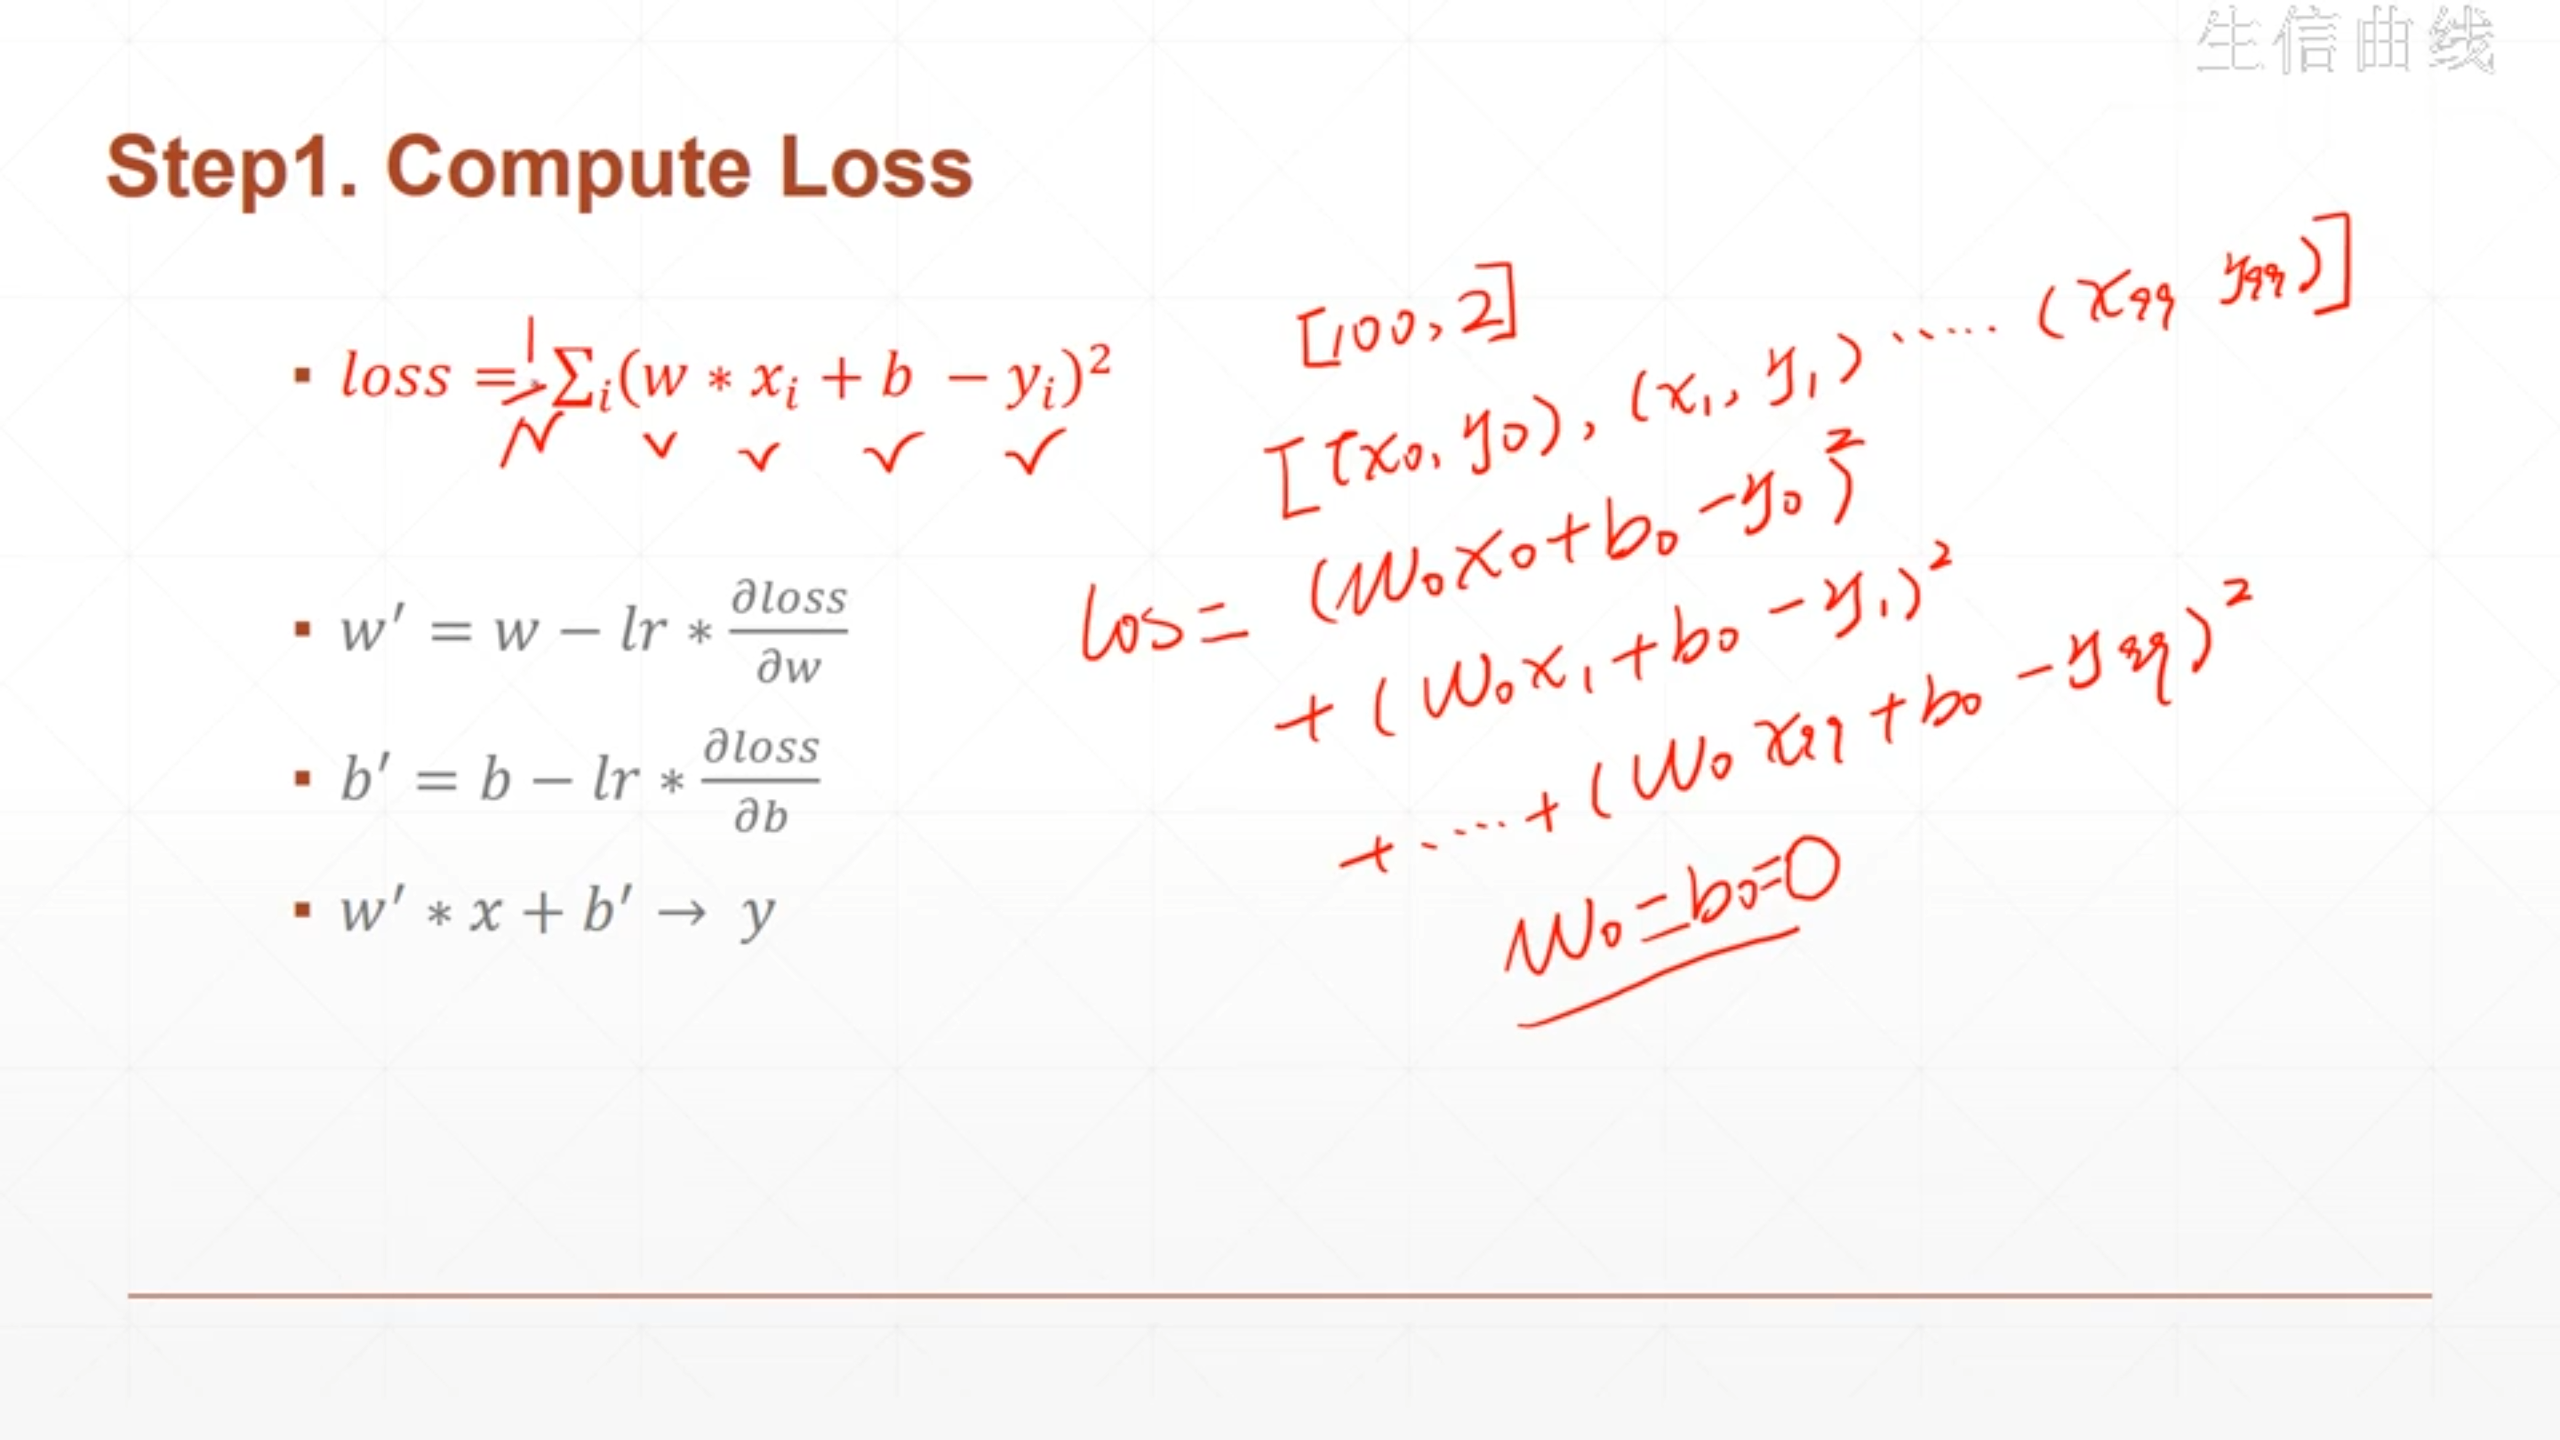 生信曲线
Step1. Compute Loss
loss = 1/N ∑ᵢ(w * xᵢ + b − yᵢ)²
w′ = w − lr * ∂loss/∂w
b′ = b − lr * ∂loss/∂b
w′ * x + b′ → y
[100, 2]
[(x₀, y₀), (x₁, y₁) ..... (x₉₉ y₉₉)]
los = (w₀x₀ + b₀ − y₀)²
+ (w₀x₁ + b₀ − y₁)²
+ ..... + (w₀x₉₉ + b₀ − y₉₉)²
w₀ = b₀ = 0